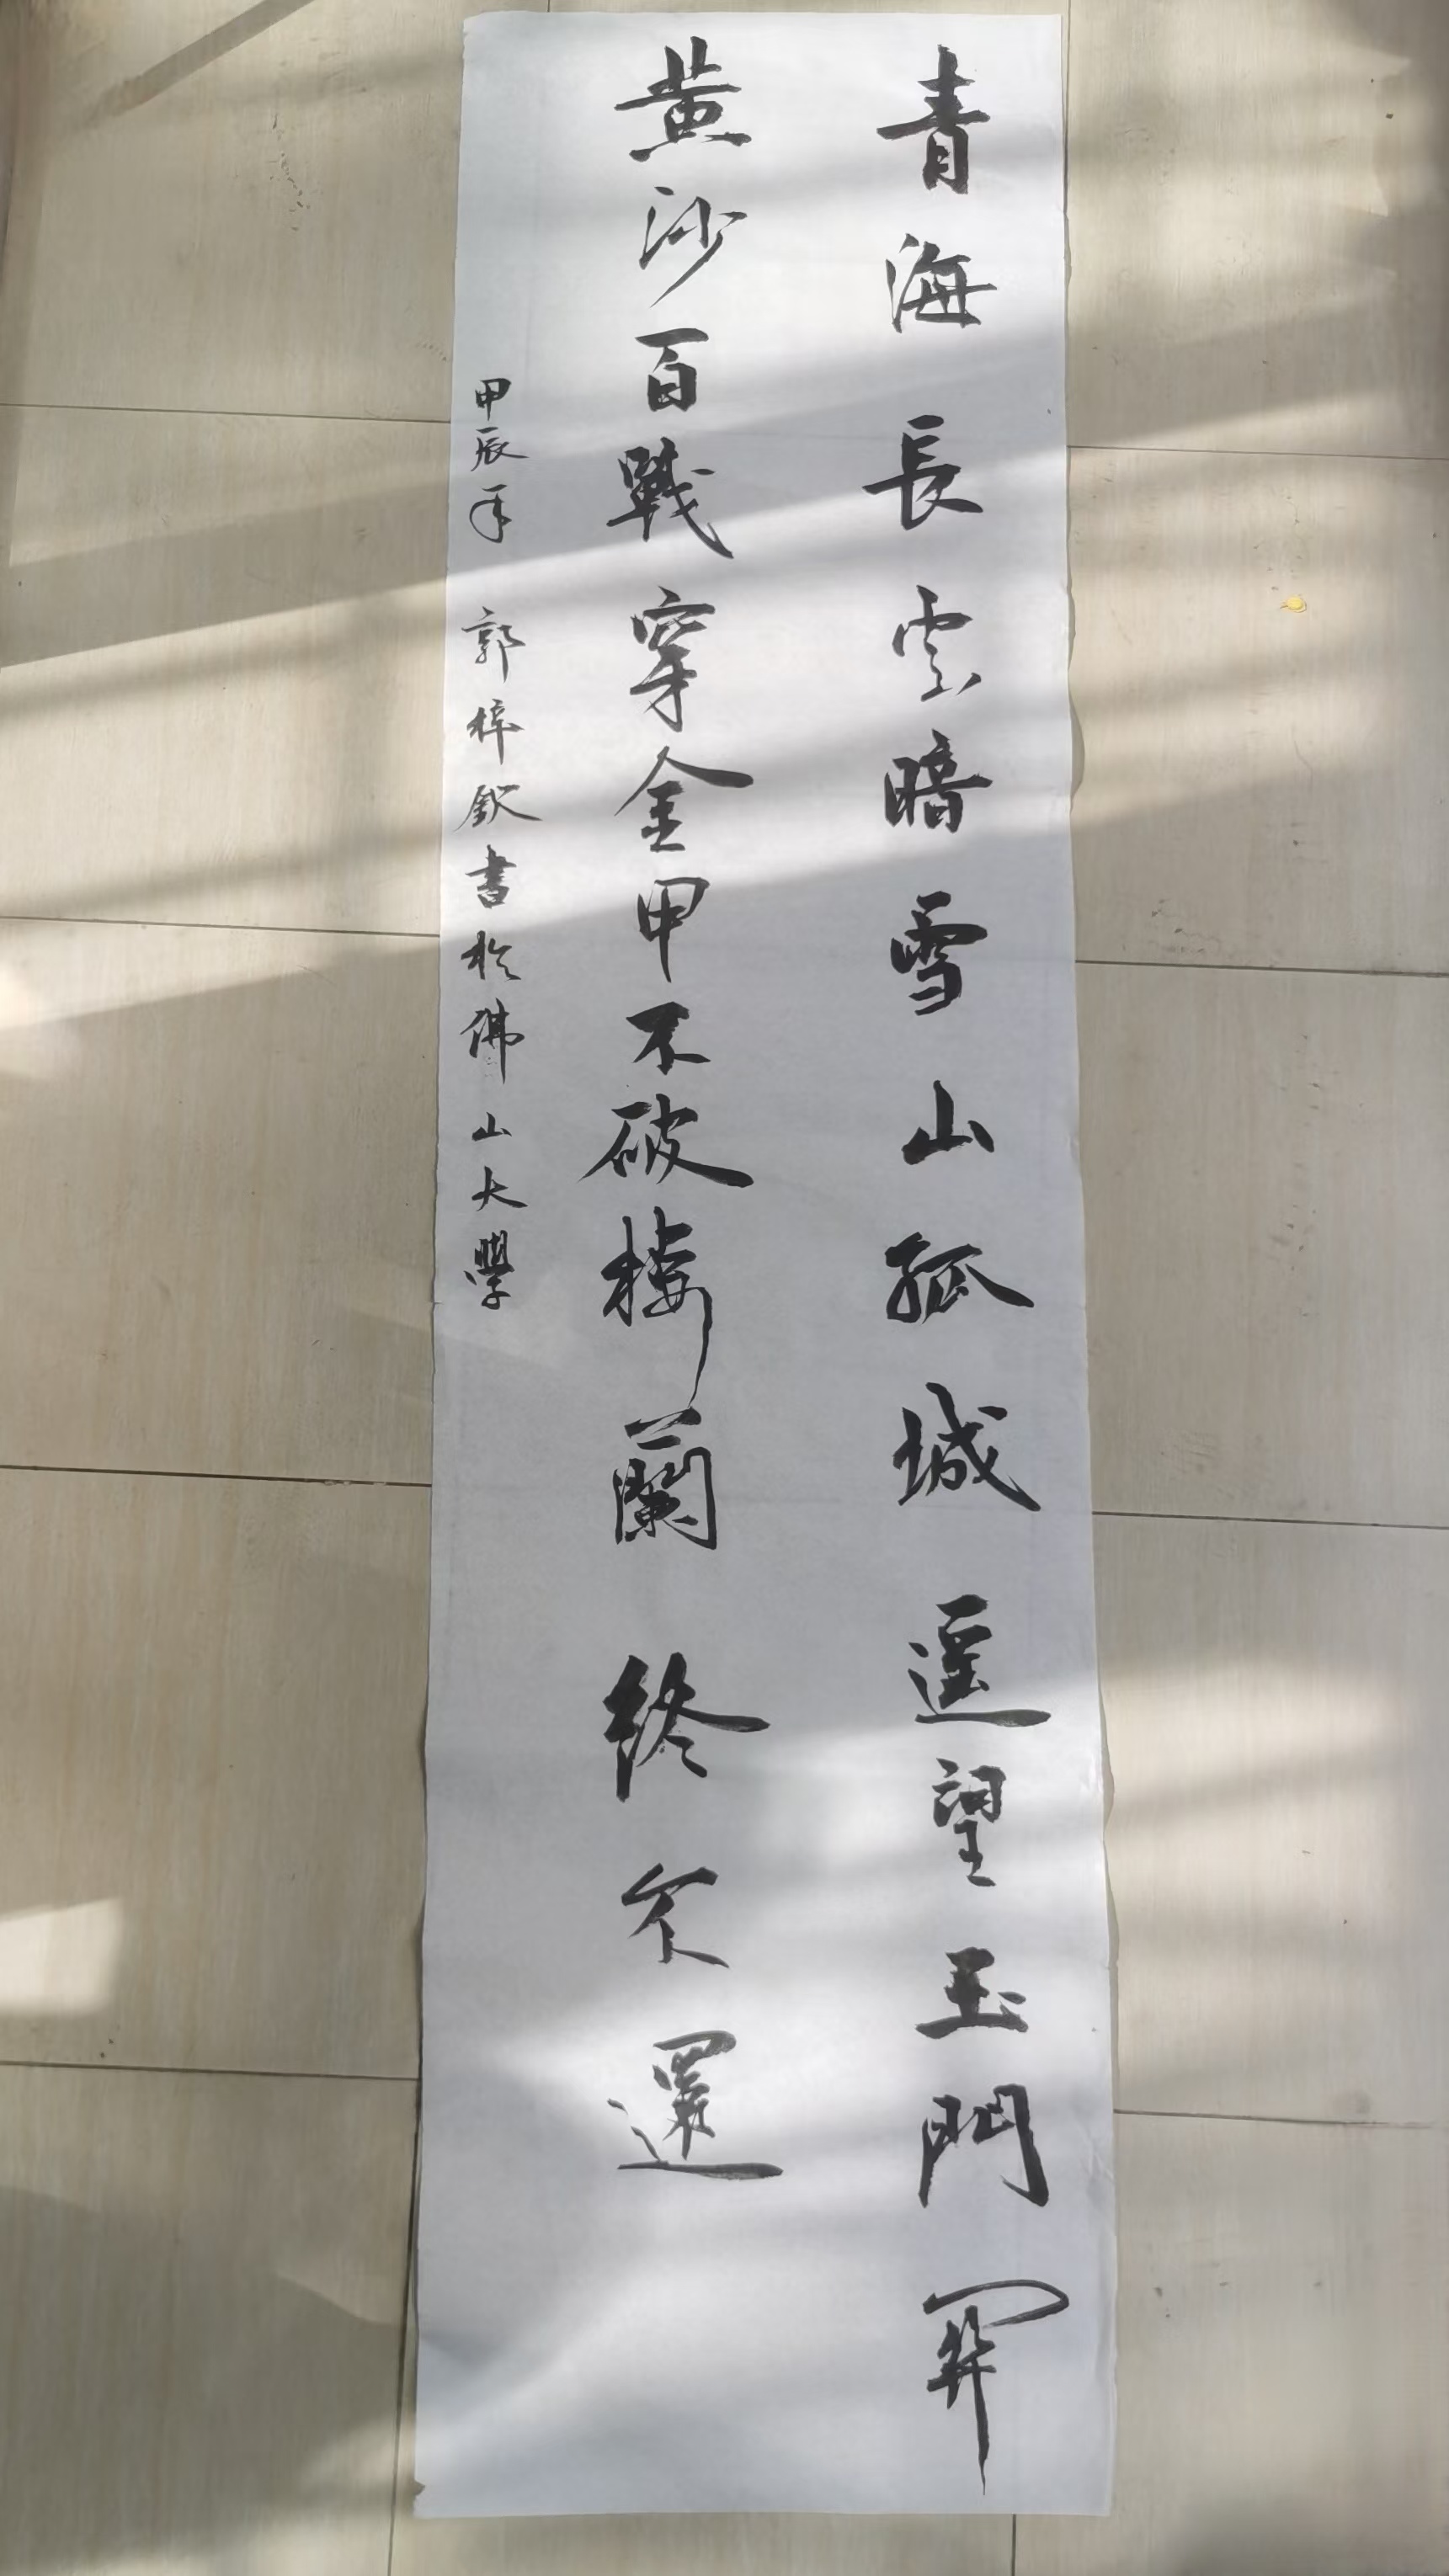 青海長雲暗雪山孤城遥望玉門關
黄沙百戰穿金甲不破樓蘭終不還
甲辰年 郭梓欽書於佛山大學